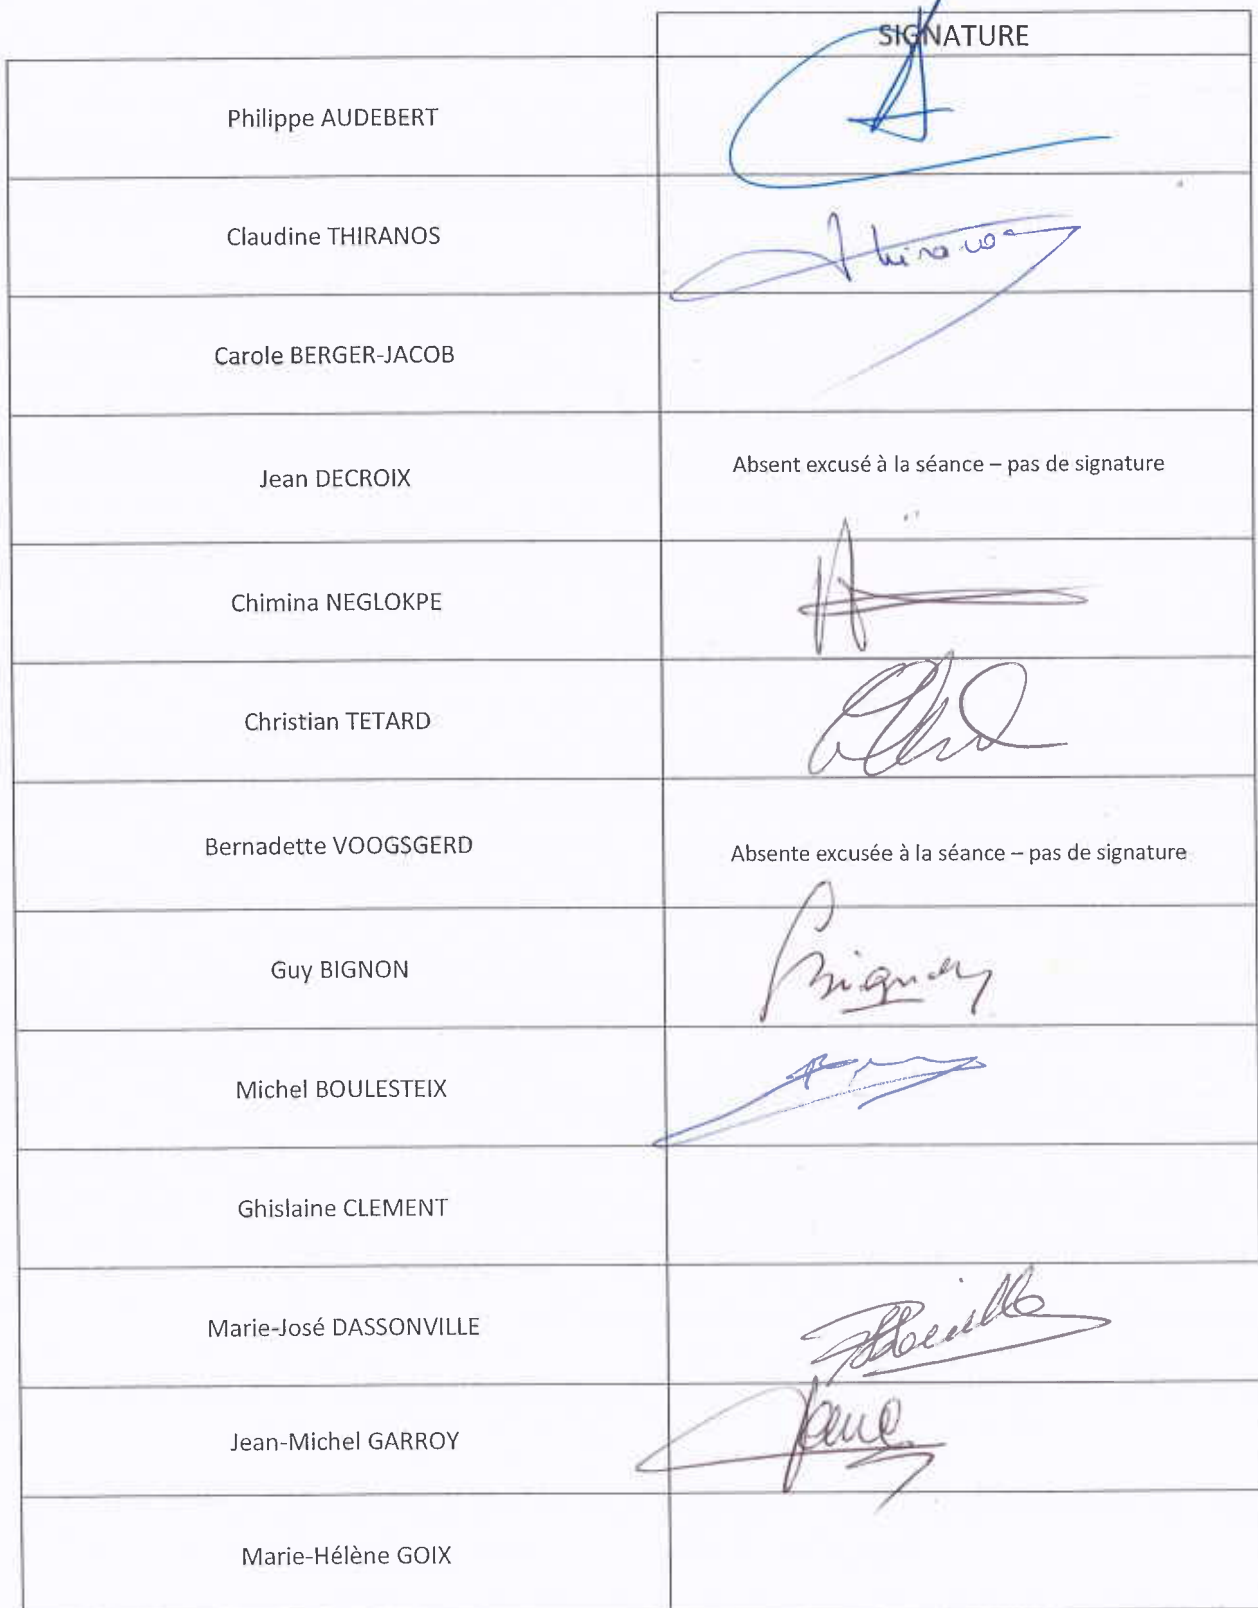 SIGNATURE
Philippe AUDEBERT
Claudine THIRANOS
Thiranos
Carole BERGER-JACOB
Jean DECROIX
Absent excusé à la séance – pas de signature
Chimina NEGLOKPE
Christian TETARD
Bernadette VOOGSGERD
Absente excusée à la séance – pas de signature
Guy BIGNON
Bignon
Michel BOULESTEIX
Ghislaine CLEMENT
Marie-José DASSONVILLE
Jean-Michel GARROY
Marie-Hélène GOIX